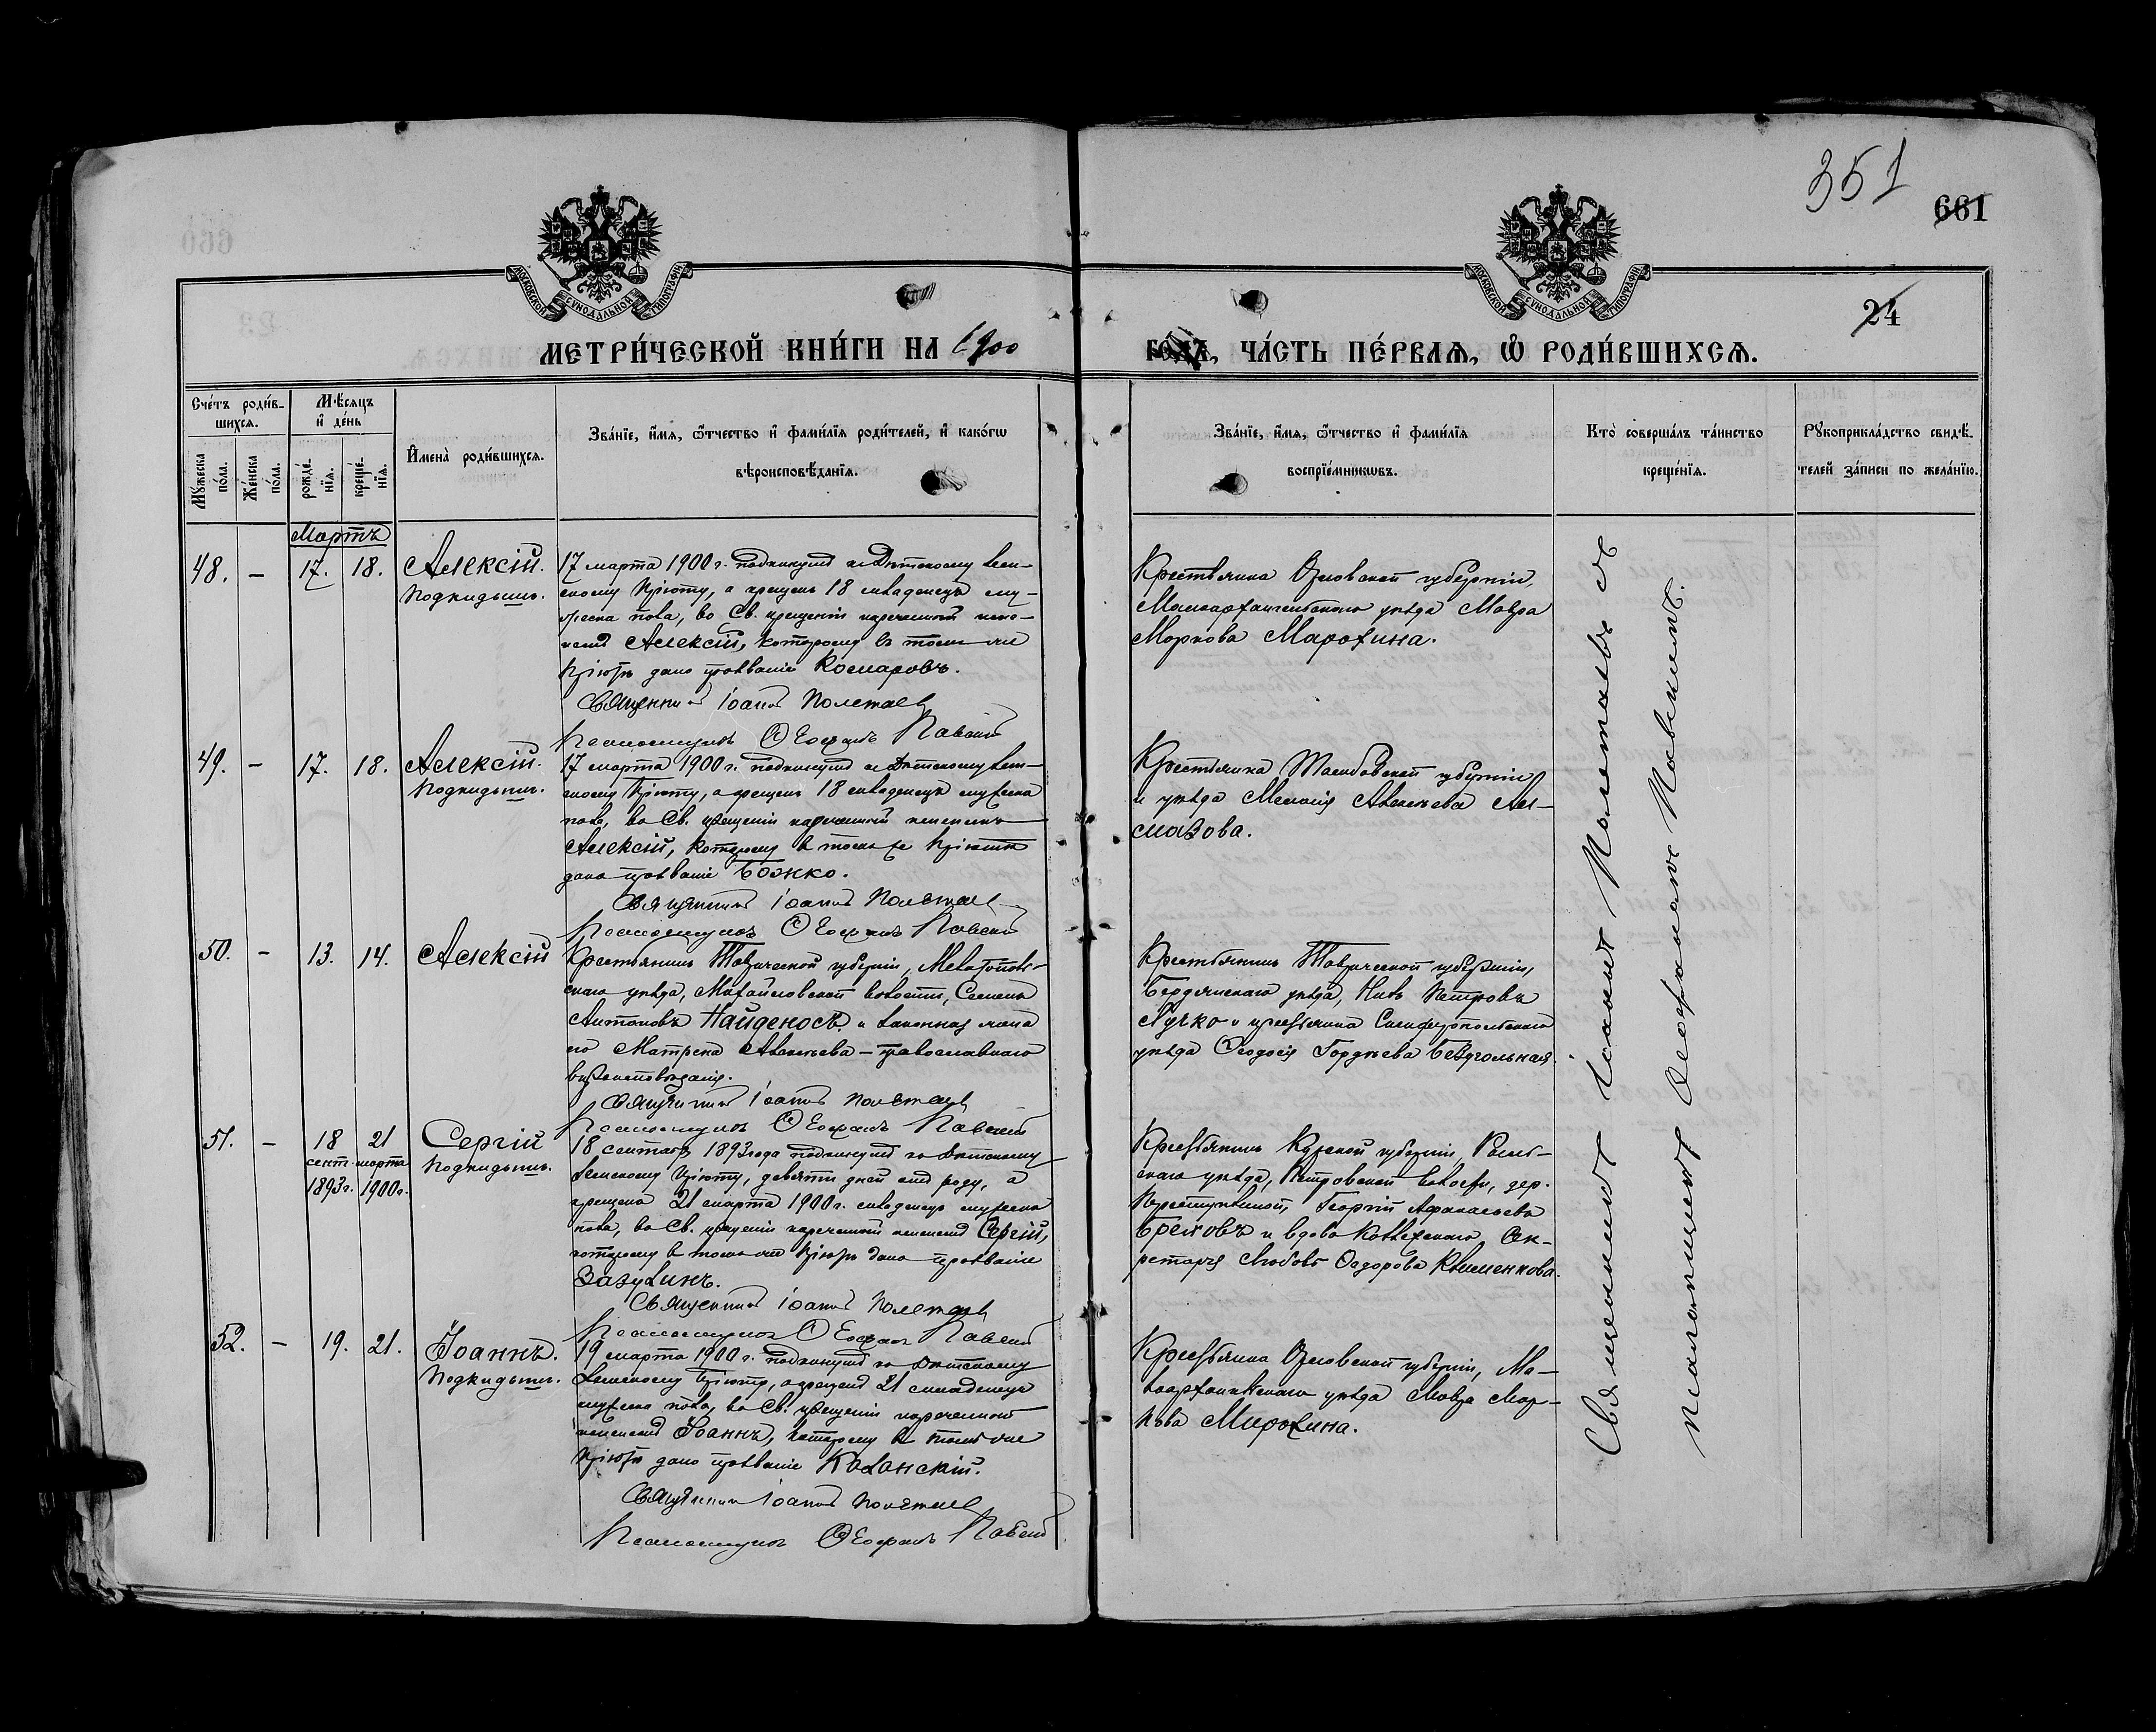 351
661
24
МОСКОВСКОЙ СУНОДАЛЬНОЙ ТИПОГРАФІИ
МОСКОВСКОЙ СУНОДАЛЬНОЙ ТИПОГРАФІИ
МЕТРИ́ЧЕСКОЙ КНИ́ГИ НА 1900
ГОДА, ЧА́СТЬ ПЕ́РВАЯ, Ѽ РОДИ́ВШИХСЯ.
Сче́тъ роди́в-
шихся.
Мѣ́сяцъ
и҆ де́нь
Мꙋ́жеска
по́ла.
Же́нска
по́ла.
рожде́-
нїя.
креще́-
нїя.
И҆мена̀ роди́вшихся.
Зва́нїе, и҆́мя, ѻ҆́тчество и҆ фами́лїя роди́телей, и҆ како́гѡ
вѣроисповѣ́данїя.
Зва́нїе, и҆́мя, ѻ҆́тчество и҆ фами́лїя
воспрїе́мникѡвъ.
Кто̀ соверша́лъ та́инство
креще́нїя.
Рꙋкоприкла́дство свидѣ́-
телей за́писи по жела́нїю.
Мартъ
48. – 17. 18. Алексій.
Подкидышъ.
17 марта 1900 г. подкинутъ къ Дѣтскому Зем-
скому Пріюту, а крещенъ 18 младенецъ му-
жеска пола, во Св. крещеніи нареченный име-
немъ Алексій, которому въ томъ же
Пріютѣ дано прозваніе Комаровъ.
Священникъ Іоаннъ Полетаевъ
Псаломщикъ Ѳеофанъ Павскій
Крестьянка Орловской губерніи,
Малоархангельскаго уѣзда Мавра
Маркова Марохина.
49. – 17. 18. Алексій.
Подкидышъ.
17 марта 1900 г. подкинутъ къ Дѣтскому Зем-
скому Пріюту, а крещенъ 18 младенецъ мужеска
пола, во Св. крещеніи нареченный именемъ
Алексій, которому въ томъ же Пріютѣ
дано прозваніе Божко.
Священникъ Іоаннъ Полетаевъ
Псаломщикъ Ѳеофанъ Павскій
Крестьянка Тамбовской губерніи
и уѣзда Меланія Алексѣева Ал-
мазова.
50. – 13. 14. Алексій
Крестьянинъ Таврической губерніи, Мелитополь-
скаго уѣзда, Михайловской волости, Семенъ
Антоновъ Найденовъ и законная жена
его Матрена Алексѣева – православнаго
вѣроисповѣданія.
Священникъ Іоаннъ Полетаевъ
Псаломщикъ Ѳеофанъ Павскій
Крестьянинъ Таврической губерніи,
Бердянскаго уѣзда, Петровъ
и крестьянка Симферопольскаго
уѣзда Ѳеодосія Гордѣева Безугольная.
51. – 18 21 Сергій
сент. марта Подкидышъ.
1893 г. 1900 г.
18 сентября 1893 года подкинутъ къ Дѣтскому
Земскому Пріюту, девяти дней отъ роду, а
крещенъ 21 марта 1900 г. младенецъ мужеска
пола, во Св. крещеніи нареченный именемъ Сергій,
которому въ томъ же Пріютѣ дано прозваніе
Зазулинъ.
Священникъ Іоаннъ Полетаевъ
Псаломщикъ Ѳеофанъ Павскій
Крестьянинъ Курской губерніи, Рыль-
скаго уѣзда, Петровской волости, дер.
Георгій Афанасьевъ
и вдова Коллежскаго Сек-
ретаря Любовь Ѳедорова Клименкова.
52. – 19. 21. Іоаннъ.
Подкидышъ.
19 марта 1900 г. подкинутъ къ Дѣтскому
Земскому Пріюту, а крещенъ 21 младенецъ
мужеска пола, во Св. крещеніи нареченный
именемъ Іоаннъ, которому въ томъ же
Пріютѣ дано прозваніе Казанскій.
Священникъ Іоаннъ Полетаевъ
Псаломщикъ Ѳеофанъ Павскій
Крестьянка Орловской губерніи, Ма-
лоархангельскаго уѣзда Мавра Мар-
кова Мирохина.
Священникъ Іоаннъ Полетаевъ съ
псаломщикомъ Ѳеофаномъ Павскимъ.